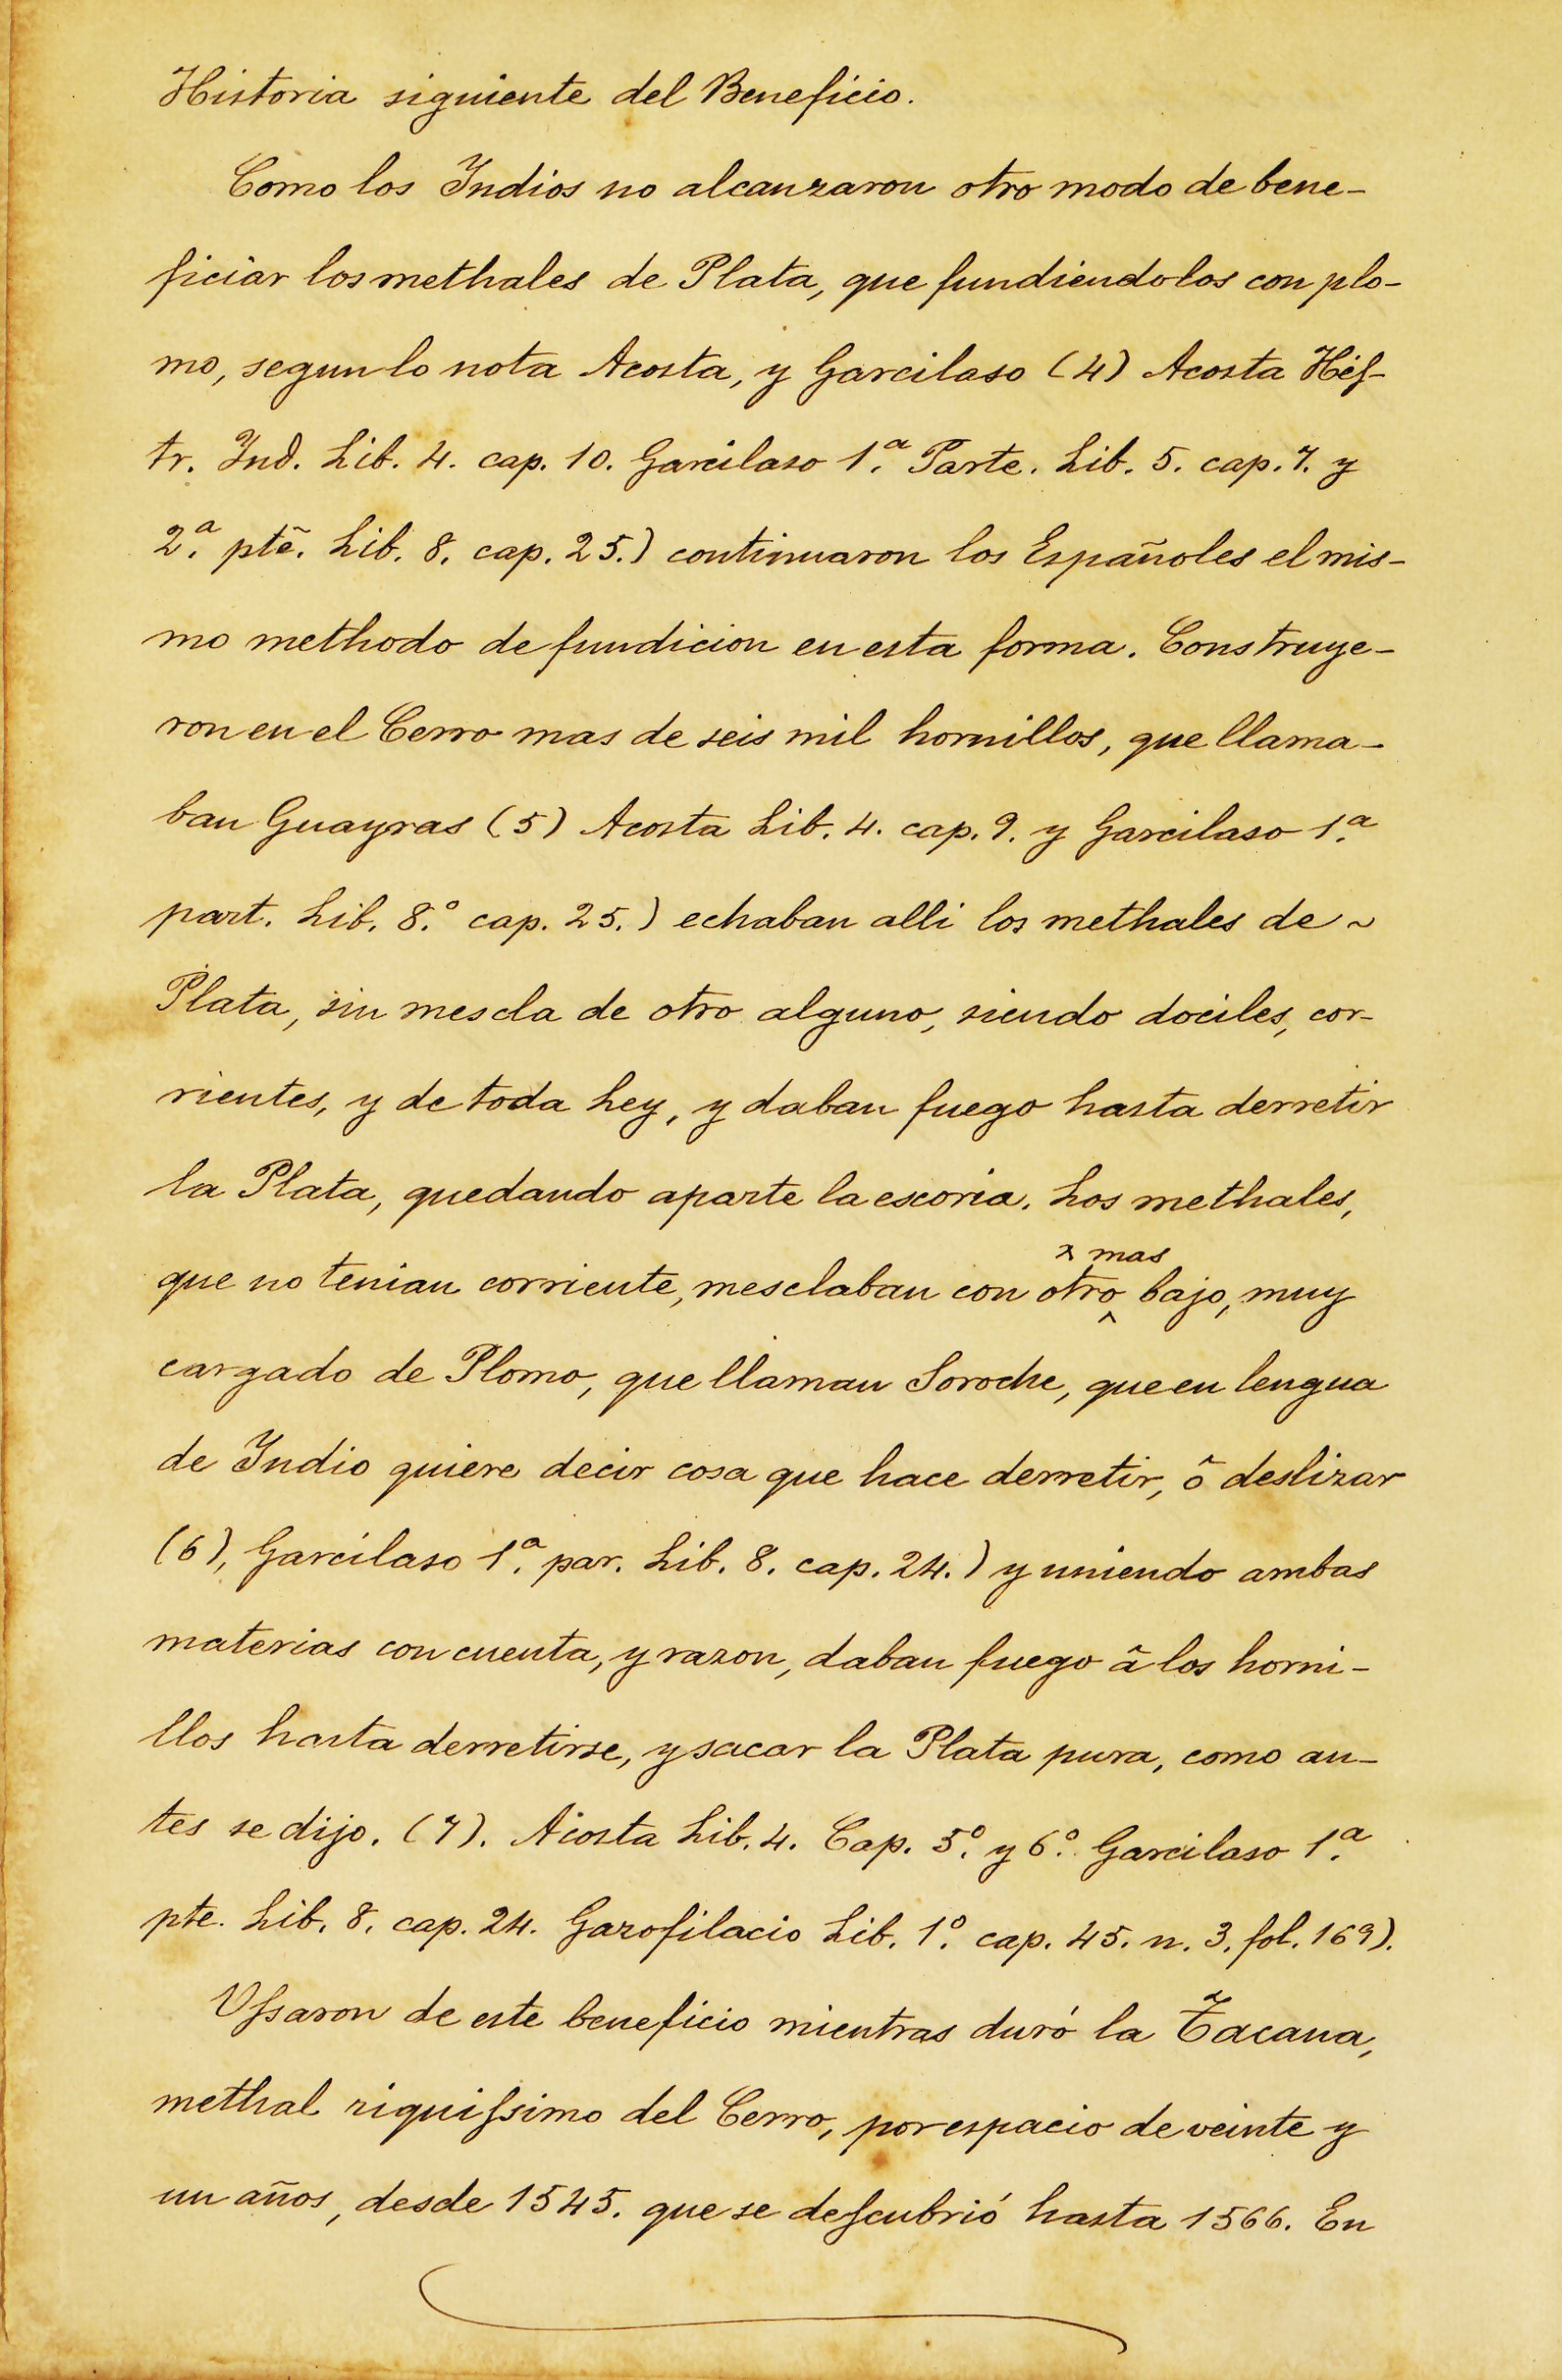 Historia siguiente del Beneficio.
Como los Indios no alcanzaron otro modo de bene-
ficiar los methales de Plata, que fundiendolos con plo-
mo, segun lo nota Acosta, y Garcilaso (4) Acosta Hiſ-
tr. Ind. Lib. 4. cap. 10. Garcilaso 1.ª Parte. Lib. 5. cap. 7. y
2.ª ptẽ. Lib. 8. cap. 25.) continuaron los Españoles el mis-
mo methodo de fundicion en esta forma. Construye-
ron en el Cerro mas de seis mil hornillos, que llama-
ban Guayras (5) Acosta Lib. 4. cap. 9. y Garcilaso 1.ª
part. Lib. 8.º cap. 25.) echaban alli los methales de ~
Plata, sin mescla de otro alguno, siendo dociles, cor-
rientes, y de toda Ley, y daban fuego hasta derretir
la Plata, quedando aparte la escoria. Los methales,
que no tenian corriente, mesclaban con otro ^ mas bajo, muy
cargado de Plomo, que llaman Soroche, que en lengua
de Indio quiere decir cosa que hace derretir, ô deslizar
(6), Garcilaso 1.ª par. Lib. 8. cap. 24.) y uniendo ambas
materias con cuenta, y razon, daban fuego â los horni-
llos hasta derretirse, y sacar la Plata pura, como an-
tes se dijo. (7). Acosta Lib. 4. Cap. 5.º y 6.º Garcilaso 1.ª
pte. Lib. 8. cap. 24. Gazofilacio Lib. 1.º cap. 45. n. 3. fol. 169).
Uſsaron de este beneficio mientras duró la Tacana,
methal riquiſsimo del Cerro, por espacio de veinte y
un años, desde 1545. que se deſcubrió hasta 1566. En